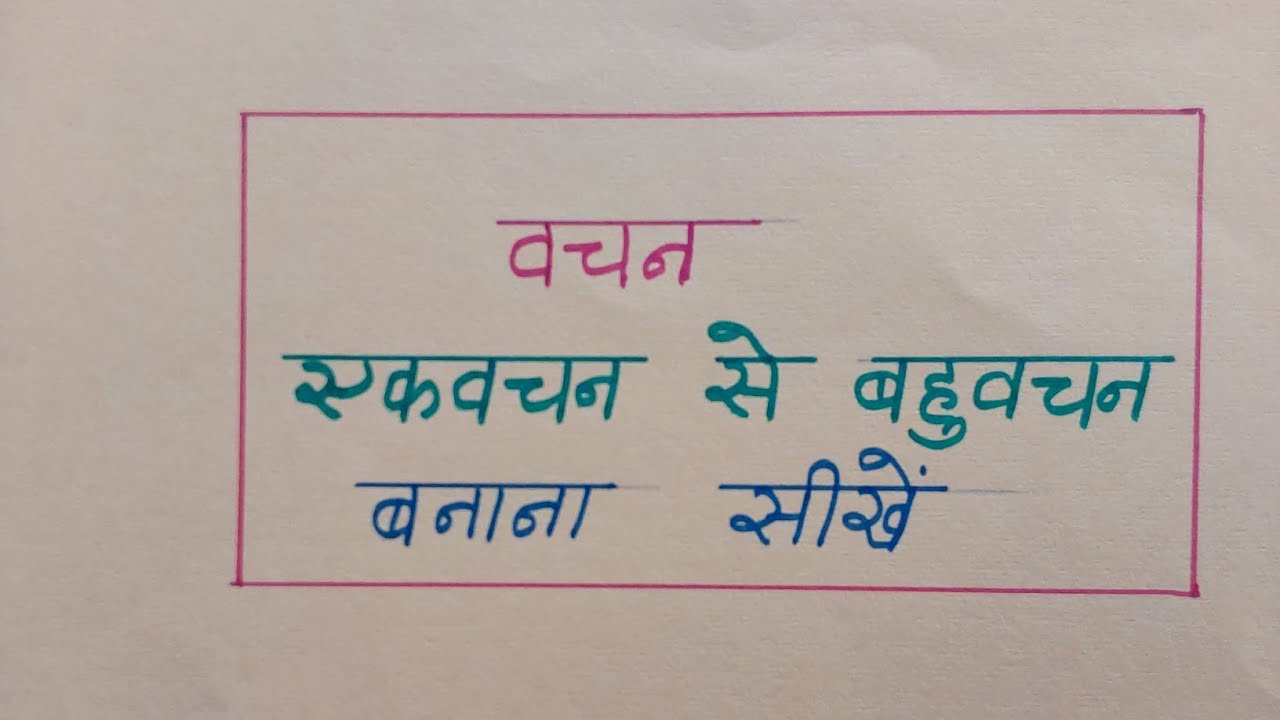 वचन
एकवचन से बहुवचन
बनाना सीखें